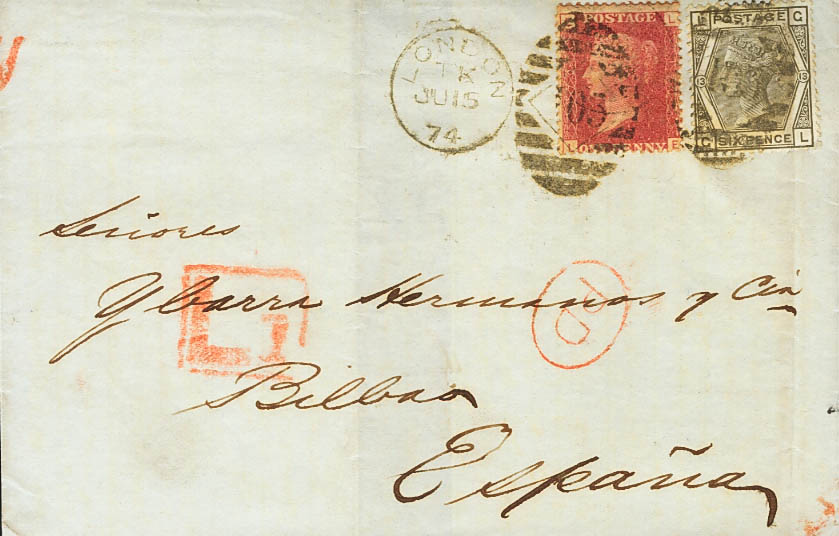 LONDON
TK
JU 15
74
POSTAGE
L E
ONE PENNY
L G
POSTAGE
13 13
SIX PENCE
G L
Señores
Ybarra Hermanos y Cia
PD
L1
Bilbao
España